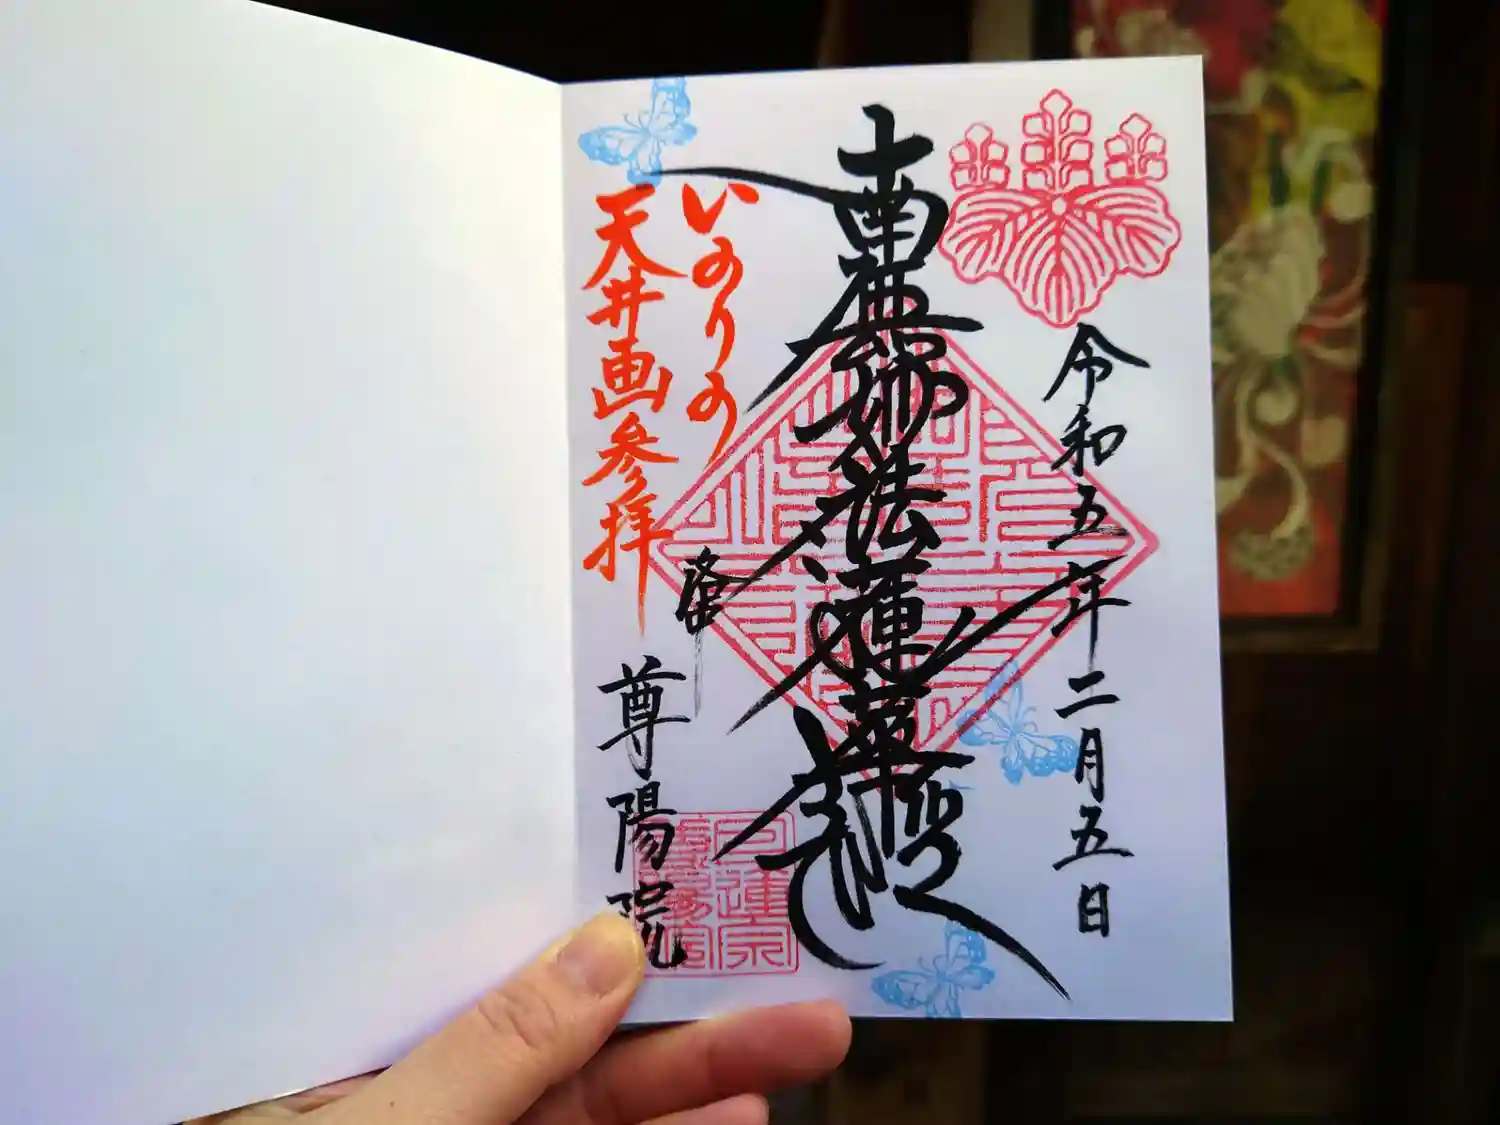 令和五年二月五日
南無妙法蓮華経
いのりの
天井画参拝
尊陽院
日蓮宗